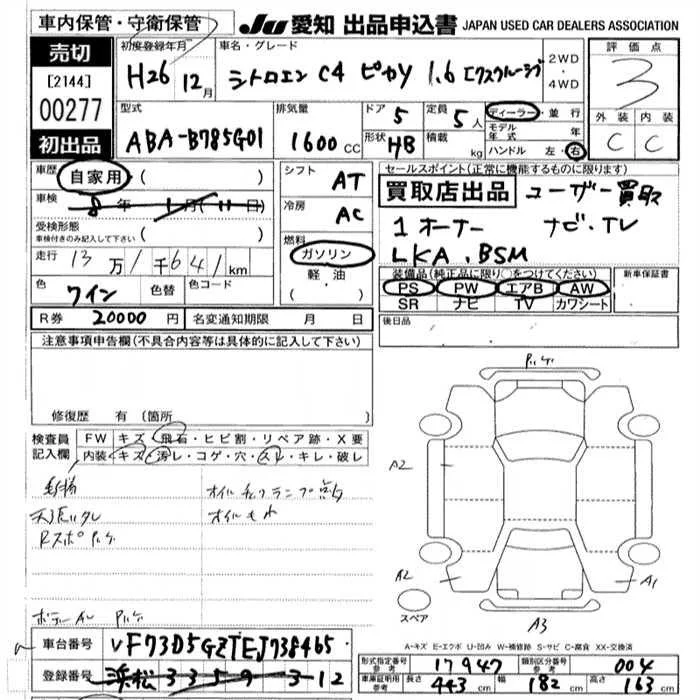 車内保管・守衛保管
Ju 愛知 出品申込書 JAPAN USED CAR DEALERS ASSOCIATION
売切
[2144]
00277
初出品
初度登録年月
H26 12月
車名・グレード
シトロエン C4 ピカソ 1.6 エクスクルーシブ
2WD
・
4WD
評価点
3
外装 内装
C C
型式
ABA-B785G01
排気量
1600 CC
ドア 5
形状 HB
定員 5人
積載 kg
ディーラー・並行
モデル年式 年
ハンドル 左・右
車歴
自家用 ( )
車検
8年 1月(11日)
受検形態
車検付きのみ記入して下さい ( )
走行 13万1千641km
色 ワイン 色替 色コード
シフト AT
冷房 AC
燃料
ガソリン
軽油
( ・ )
セールスポイント(正常に機能するものに限る)
買取店出品 ユーザー買取
1オーナー ナビ・TV
LKA.BSM
装備品(純正品に限り○をつけてください)
PS PW エアB AW
SR ナビ TV カワシート
新車保証書
後日品
R券 20000円 名変通知期限 月 日
注意事項申告欄(不具合内容等は具体的に記入して下さい)
修復歴 有(箇所
検査員
記入欄
FW キズ・飛石・ヒビ割・リペア跡・X要
内装 キズ・汚レ・コゲ・穴・スレ・キレ・破レ
オイルチェックランプ点灯
オイルモレ
天張りタレ
Rスポハゲ
ハゲ
A2
A2
A1
A3
スペア
A-キズ E-エクボ U-凹み W-補修跡 S-サビ C-腐食 XX-交換済
車台番号 VF73D5GZTEJ738465
登録番号 浜松 335 ヲ 3-12
形式指定番号
参考
17947
類別区分番号
参考
004
車庫証明用
参考
長さ 443 cm 幅 182 cm 高さ 163 cm